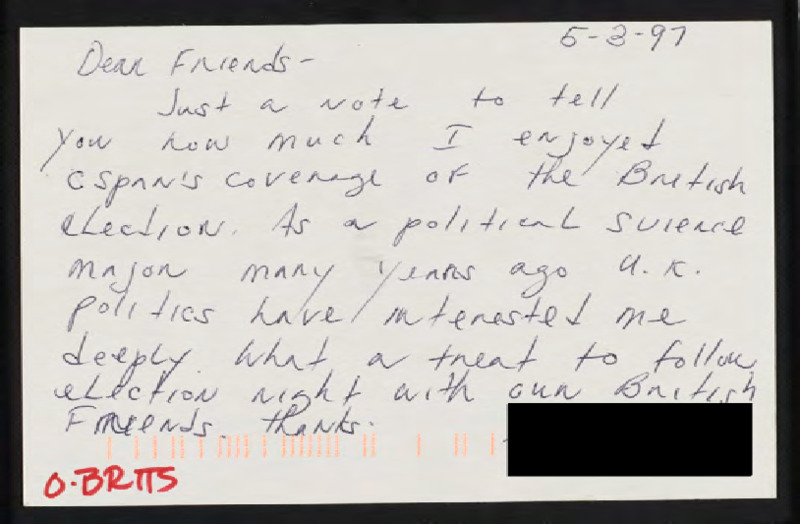 5-3-97
Dear Friends-
Just a note to tell
you how much I enjoyed
CSPAN's coverage of the British
election. As a political science
major many years ago U.K.
politics have interested me
deeply. What a treat to follow
election night with our British
Friends. Thanks.
O-BRITS